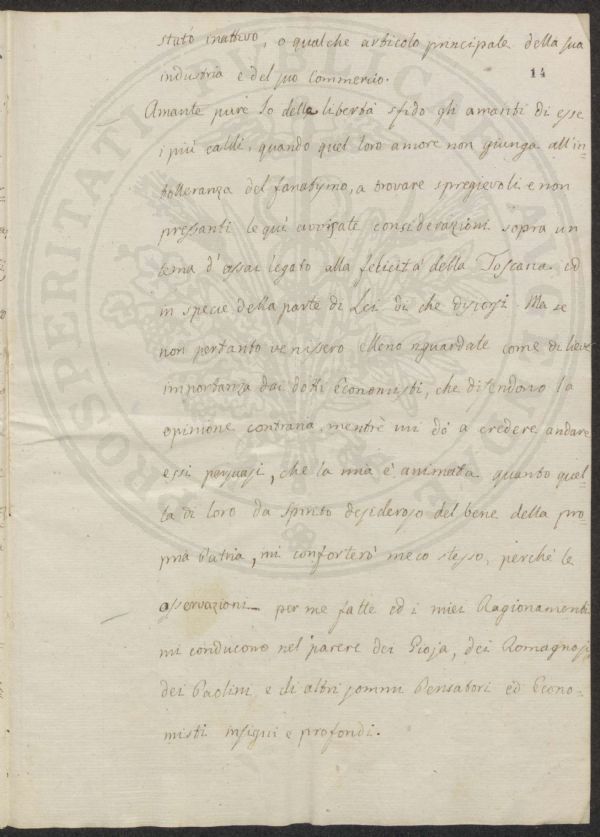 stato inattivo, o qualche articolo principale della sua
14
industria e del suo Commercio.
Amante pure Io della libertà sfido gli amanti di esse
i più caldi, quando quel loro amore non giunga all'in-
tolleranza del fanatismo, a trovare spregievoli e non
pressanti le quì avvisate considerazioni sopra un
tema d'assai legato alla felicità della Toscana ed
in specie della parte di Lei di che discorsi. Ma se
non pertanto venissero elleno riguardate come di lieve
importanza dai dotti Economisti, che difendono la
opinione contraria, mentrè mi dò a credere andare
essi persuasi, che la mia è animata quanto quel-
la di loro da spirito desideroso del bene della pro-
pria Patria, mi conforterò meco stesso, perchè le
osservazioni per me fatte ed i miei Ragionamenti
mi conducono nel parere dei Gioja, dei Romagnosi
dei Paolini e di altri sommi Pensatori ed Econo-
misti insigni e profondi.
PROSPERITATI PUBLICAE AUGENDAE